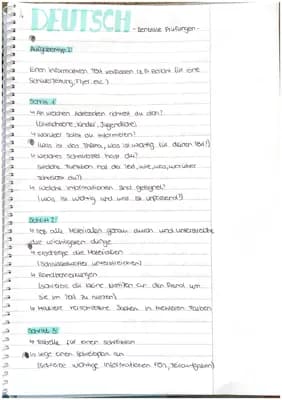 DEUTSCH - Zentrale Prüfungen -
Aufgabentyp 2:
Einen informativen Text verfassen (z.B Bericht für eine
Schülerzeitung, Flyer, etc.)
Schritt 1:
↳ An welchen Adressaten richtest du dich?
(Erwachsene, Kinder, Jugendliche)
↳ Worüber sollst du informieren?
(Was ist das Thema, was ist wichtig für deinen Text?)
↳ welches Schreibziel hast du?
(welche Funktion hat der Text, wie, was, worüber
schreibst du?)
↳ welche Informationen sind geeignet?
(was ist wichtig und was ist unpassend?)
Schritt 2:
↳ lese alle Materialien genau durch und unterstreiche
die wichtigsten dinge
↳ erschließe die Materialien
(Schlüsselwörter unterstreichen)
↳ Randbemerkungen
(schreibe dir kleine Notizen an den Rand um
sie im Text zu nutzen)
↳ Markiere verschiedene Sachen in mehreren Farben
Schritt 3:
↳ Tabelle für einen Schreibplan
↳ lege einen Schreibplan an
(schreibe wichtige Informationen für, Teilaufgaben)